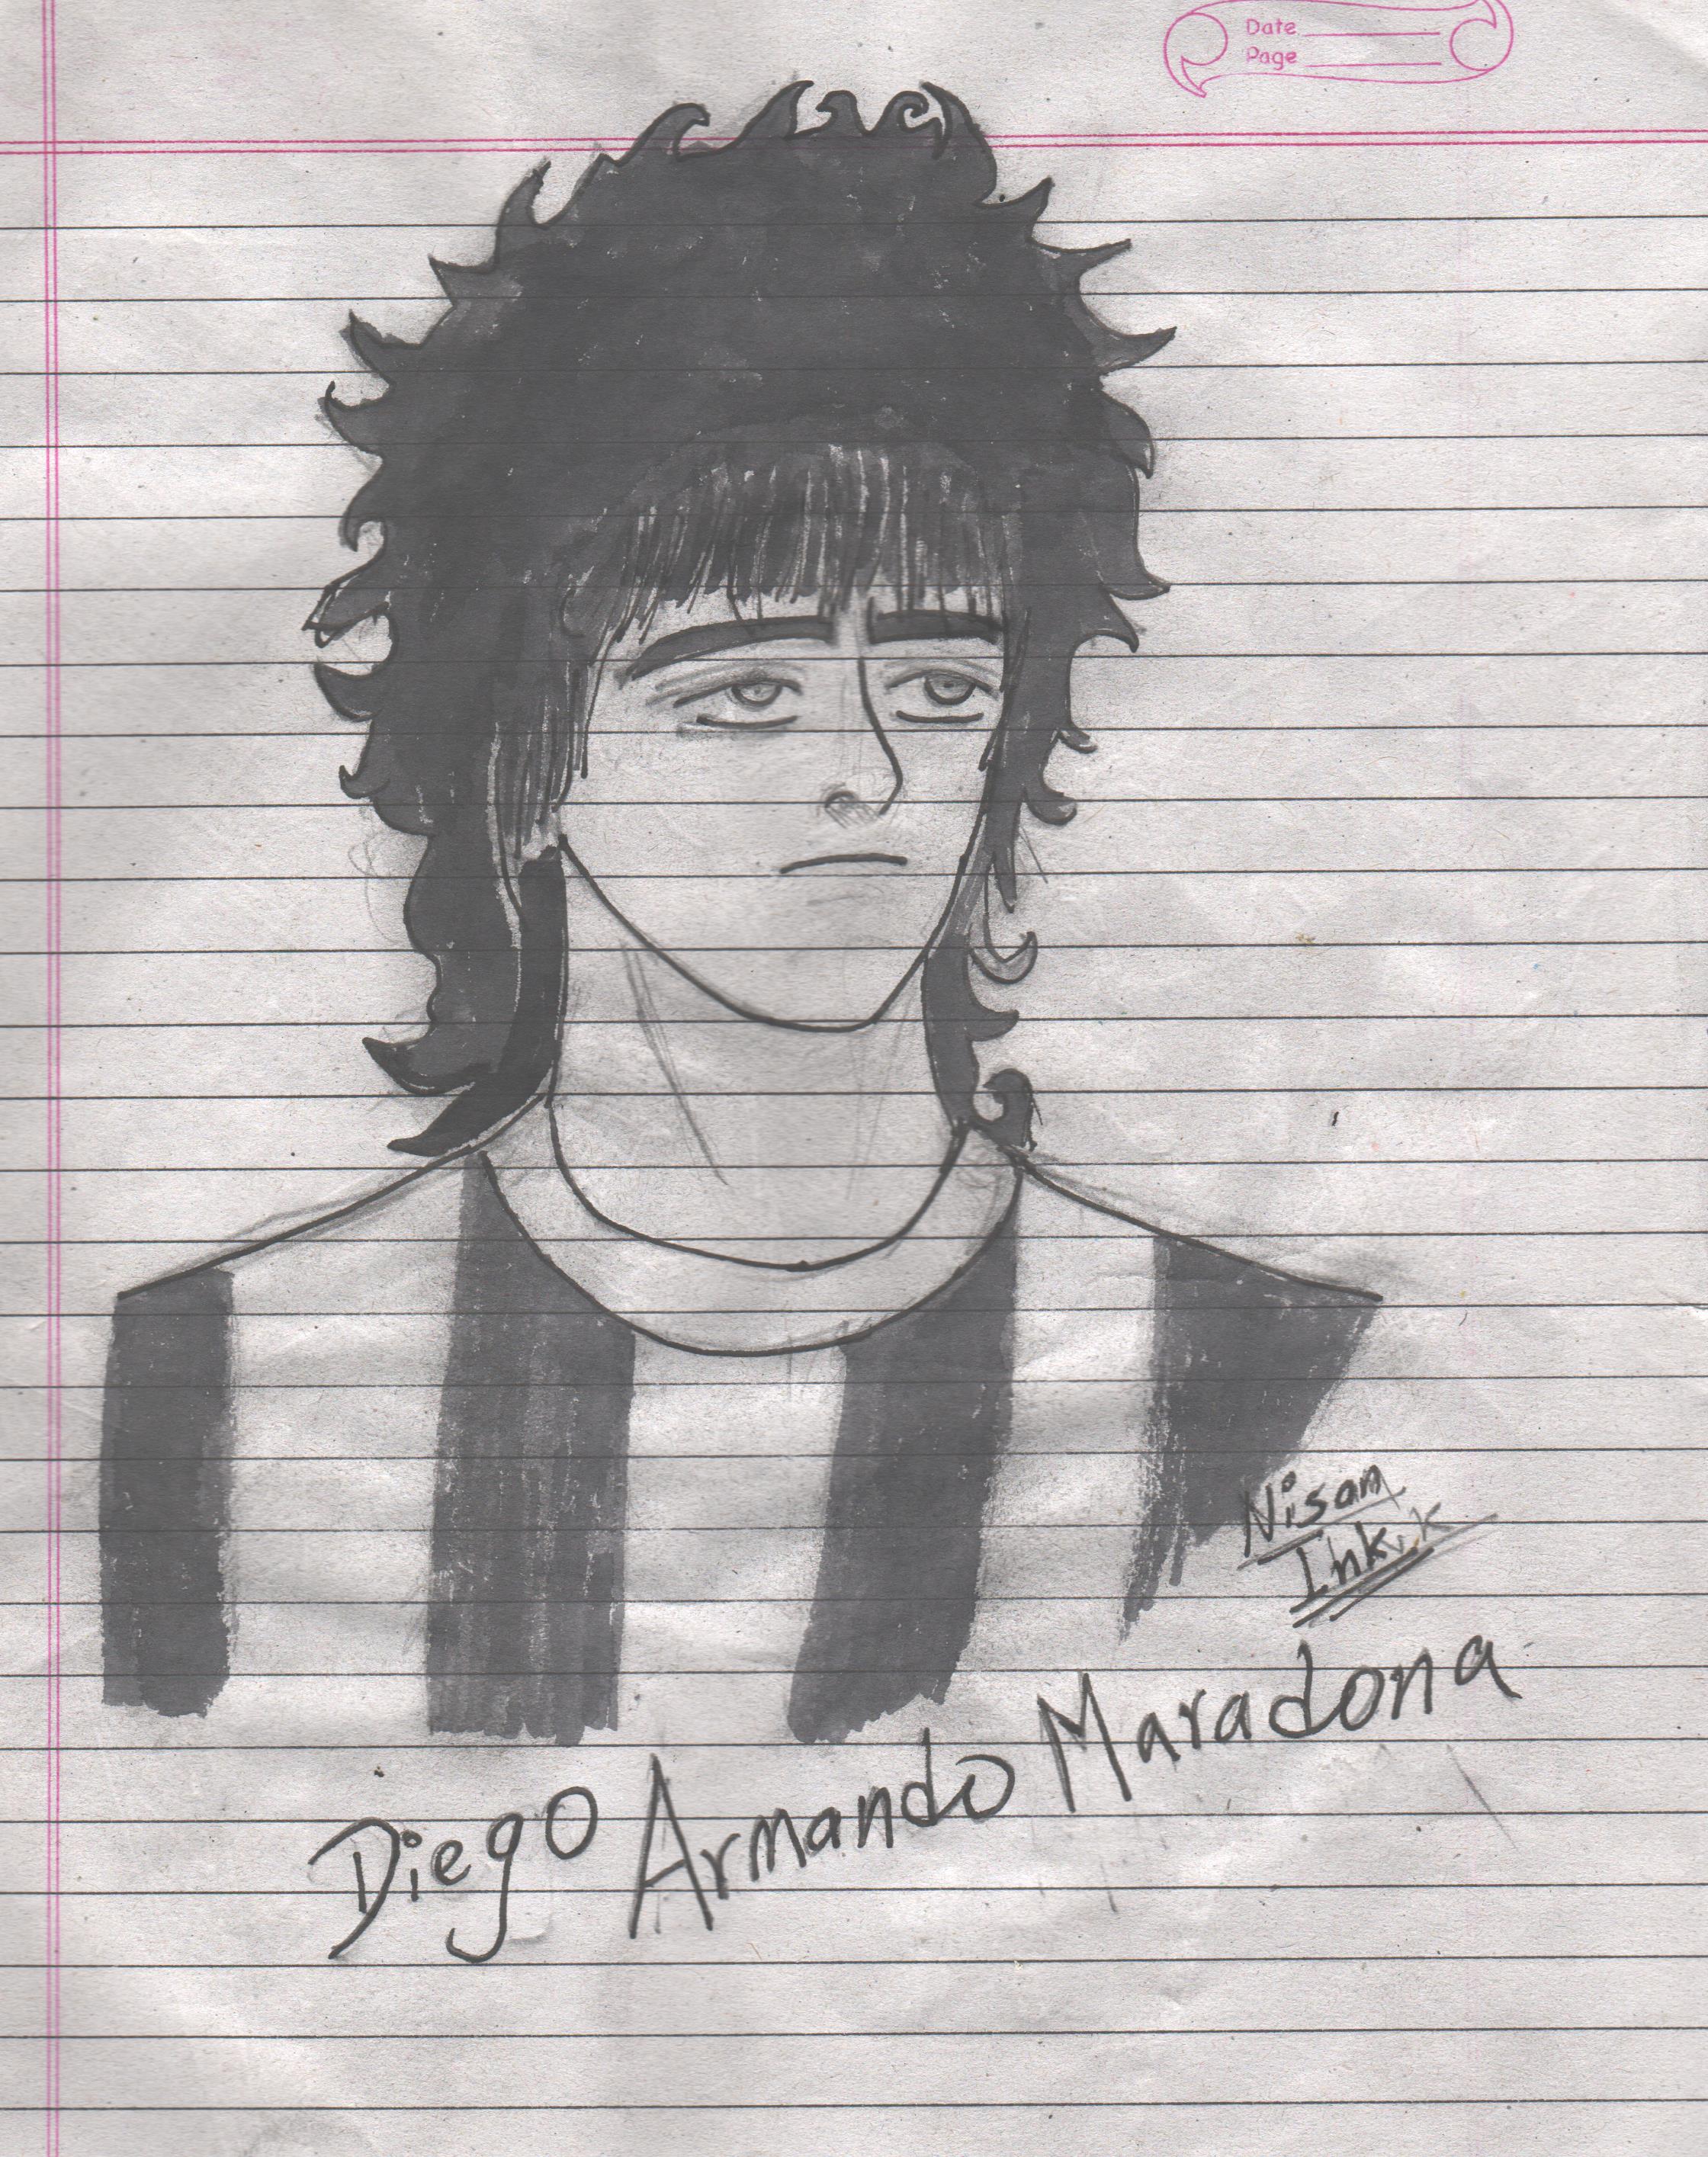 Date
Page
Nisan
Diego Armando Maradona